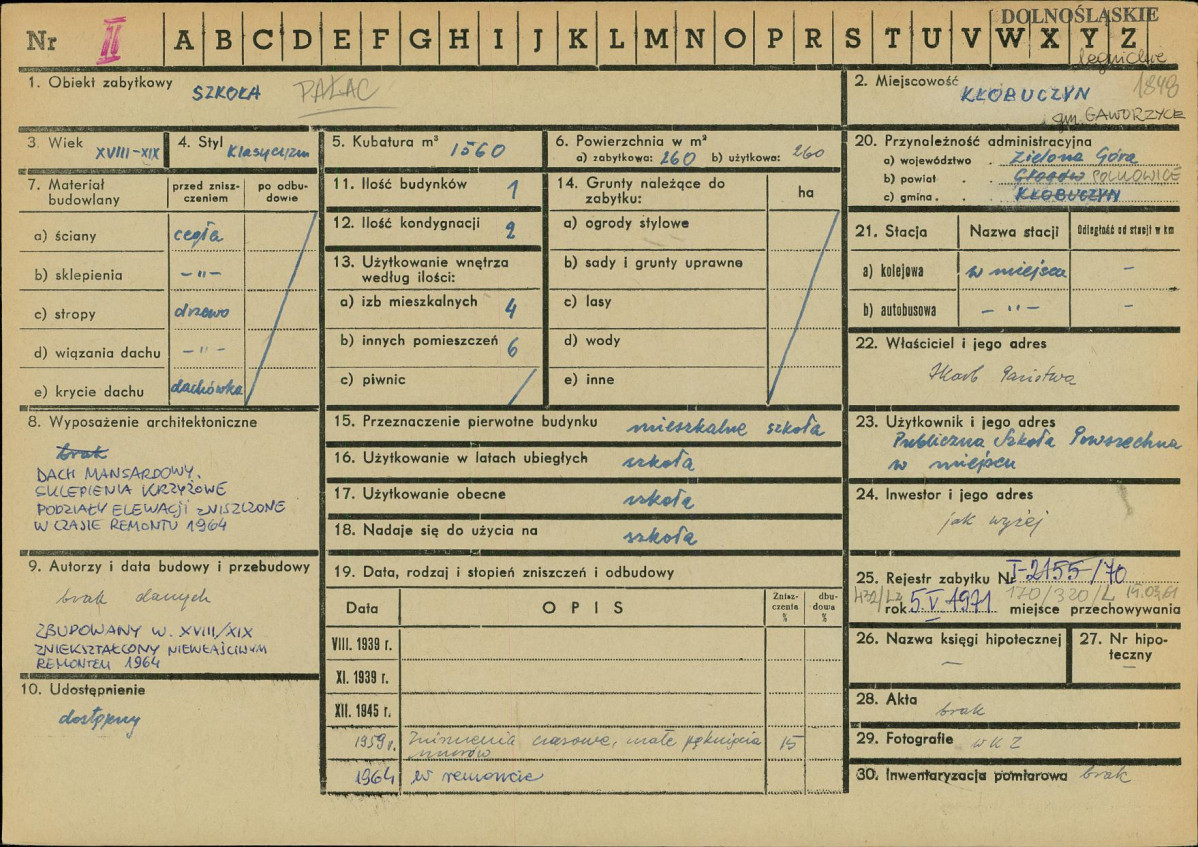 DOLNOŚLĄSKIE
Nr II A B C D E F G H I J K L M N O P R S T U V W X Y Z
legnickie
1. Obiekt zabytkowy SZKOŁA PAŁAC
2. Miejscowość 1848
KŁOBUCZYN
gm. GAWORZYCE
3. Wiek XVIII-XIX
4. Styl Klasycyzm
5. Kubatura m³ 1560
6. Powierzchnia w m²
a) zabytkowa: 260 b) użytkowa: 260
20. Przynależność administracyjna
a) województwo Zielona Góra
b) powiat Głogów POLKOWICE
c) gmina KŁOBUCZYN
7. Materiał budowlany
przed zniszczeniem
po odbudowie
a) ściany cegła
b) sklepienia -"-
c) stropy drzewo
d) wiązania dachu -"-
e) krycie dachu dachówka
11. Ilość budynków 1
12. Ilość kondygnacji 2
13. Użytkowanie wnętrza
według ilości:
a) izb mieszkalnych 4
b) innych pomieszczeń 6
c) piwnic /
14. Grunty należące do
zabytku:
ha
a) ogrody stylowe
b) sady i grunty uprawne
c) lasy
d) wody
e) inne
21. Stacja Nazwa stacji Odległość od stacji w km
a) kolejowa w miejscu -
b) autobusowa -"- -
22. Właściciel i jego adres
Skarb Państwa
8. Wyposażenie architektoniczne
brak
DACH MANSARDOWY.
SKLEPIENIA KRZYŻOWE
PODZIAŁY ELEWACJI ZNISZCZONE
W CZASIE REMONTU 1964
15. Przeznaczenie pierwotne budynku mieszkalne szkoła
16. Użytkowanie w latach ubiegłych szkoła
17. Użytkowanie obecne szkoła
18. Nadaje się do użycia na szkoła
23. Użytkownik i jego adres
Publiczna Szkoła Powszechna
w miejscu
24. Inwestor i jego adres
jak wyżej
9. Autorzy i data budowy i przebudowy
brak danych
ZBUDOWANY W. XVIII/XIX
ZNIEKSZTAŁCONY NIEWŁAŚCIWYM
REMONTEM 1964
10. Udostępnienie
dostępny
19. Data, rodzaj i stopień zniszczeń i odbudowy
Data OPIS Zniszczenia % dbudowa %
VIII. 1939 r.
XI. 1939 r.
XII. 1945 r.
1959 r. Zniszczenia czasowe, małe pęknięcia 15
murów
1964 w remoncie
25. Rejestr zabytku Nr I-2155/70
rok 5.V 1971 170/320/L 19.03.61
miejsce przechowywania
26. Nazwa księgi hipotecznej
-
27. Nr hipoteczny
-
28. Akta brak
29. Fotografie WKZ
30. Inwentaryzacja pomiarowa brak